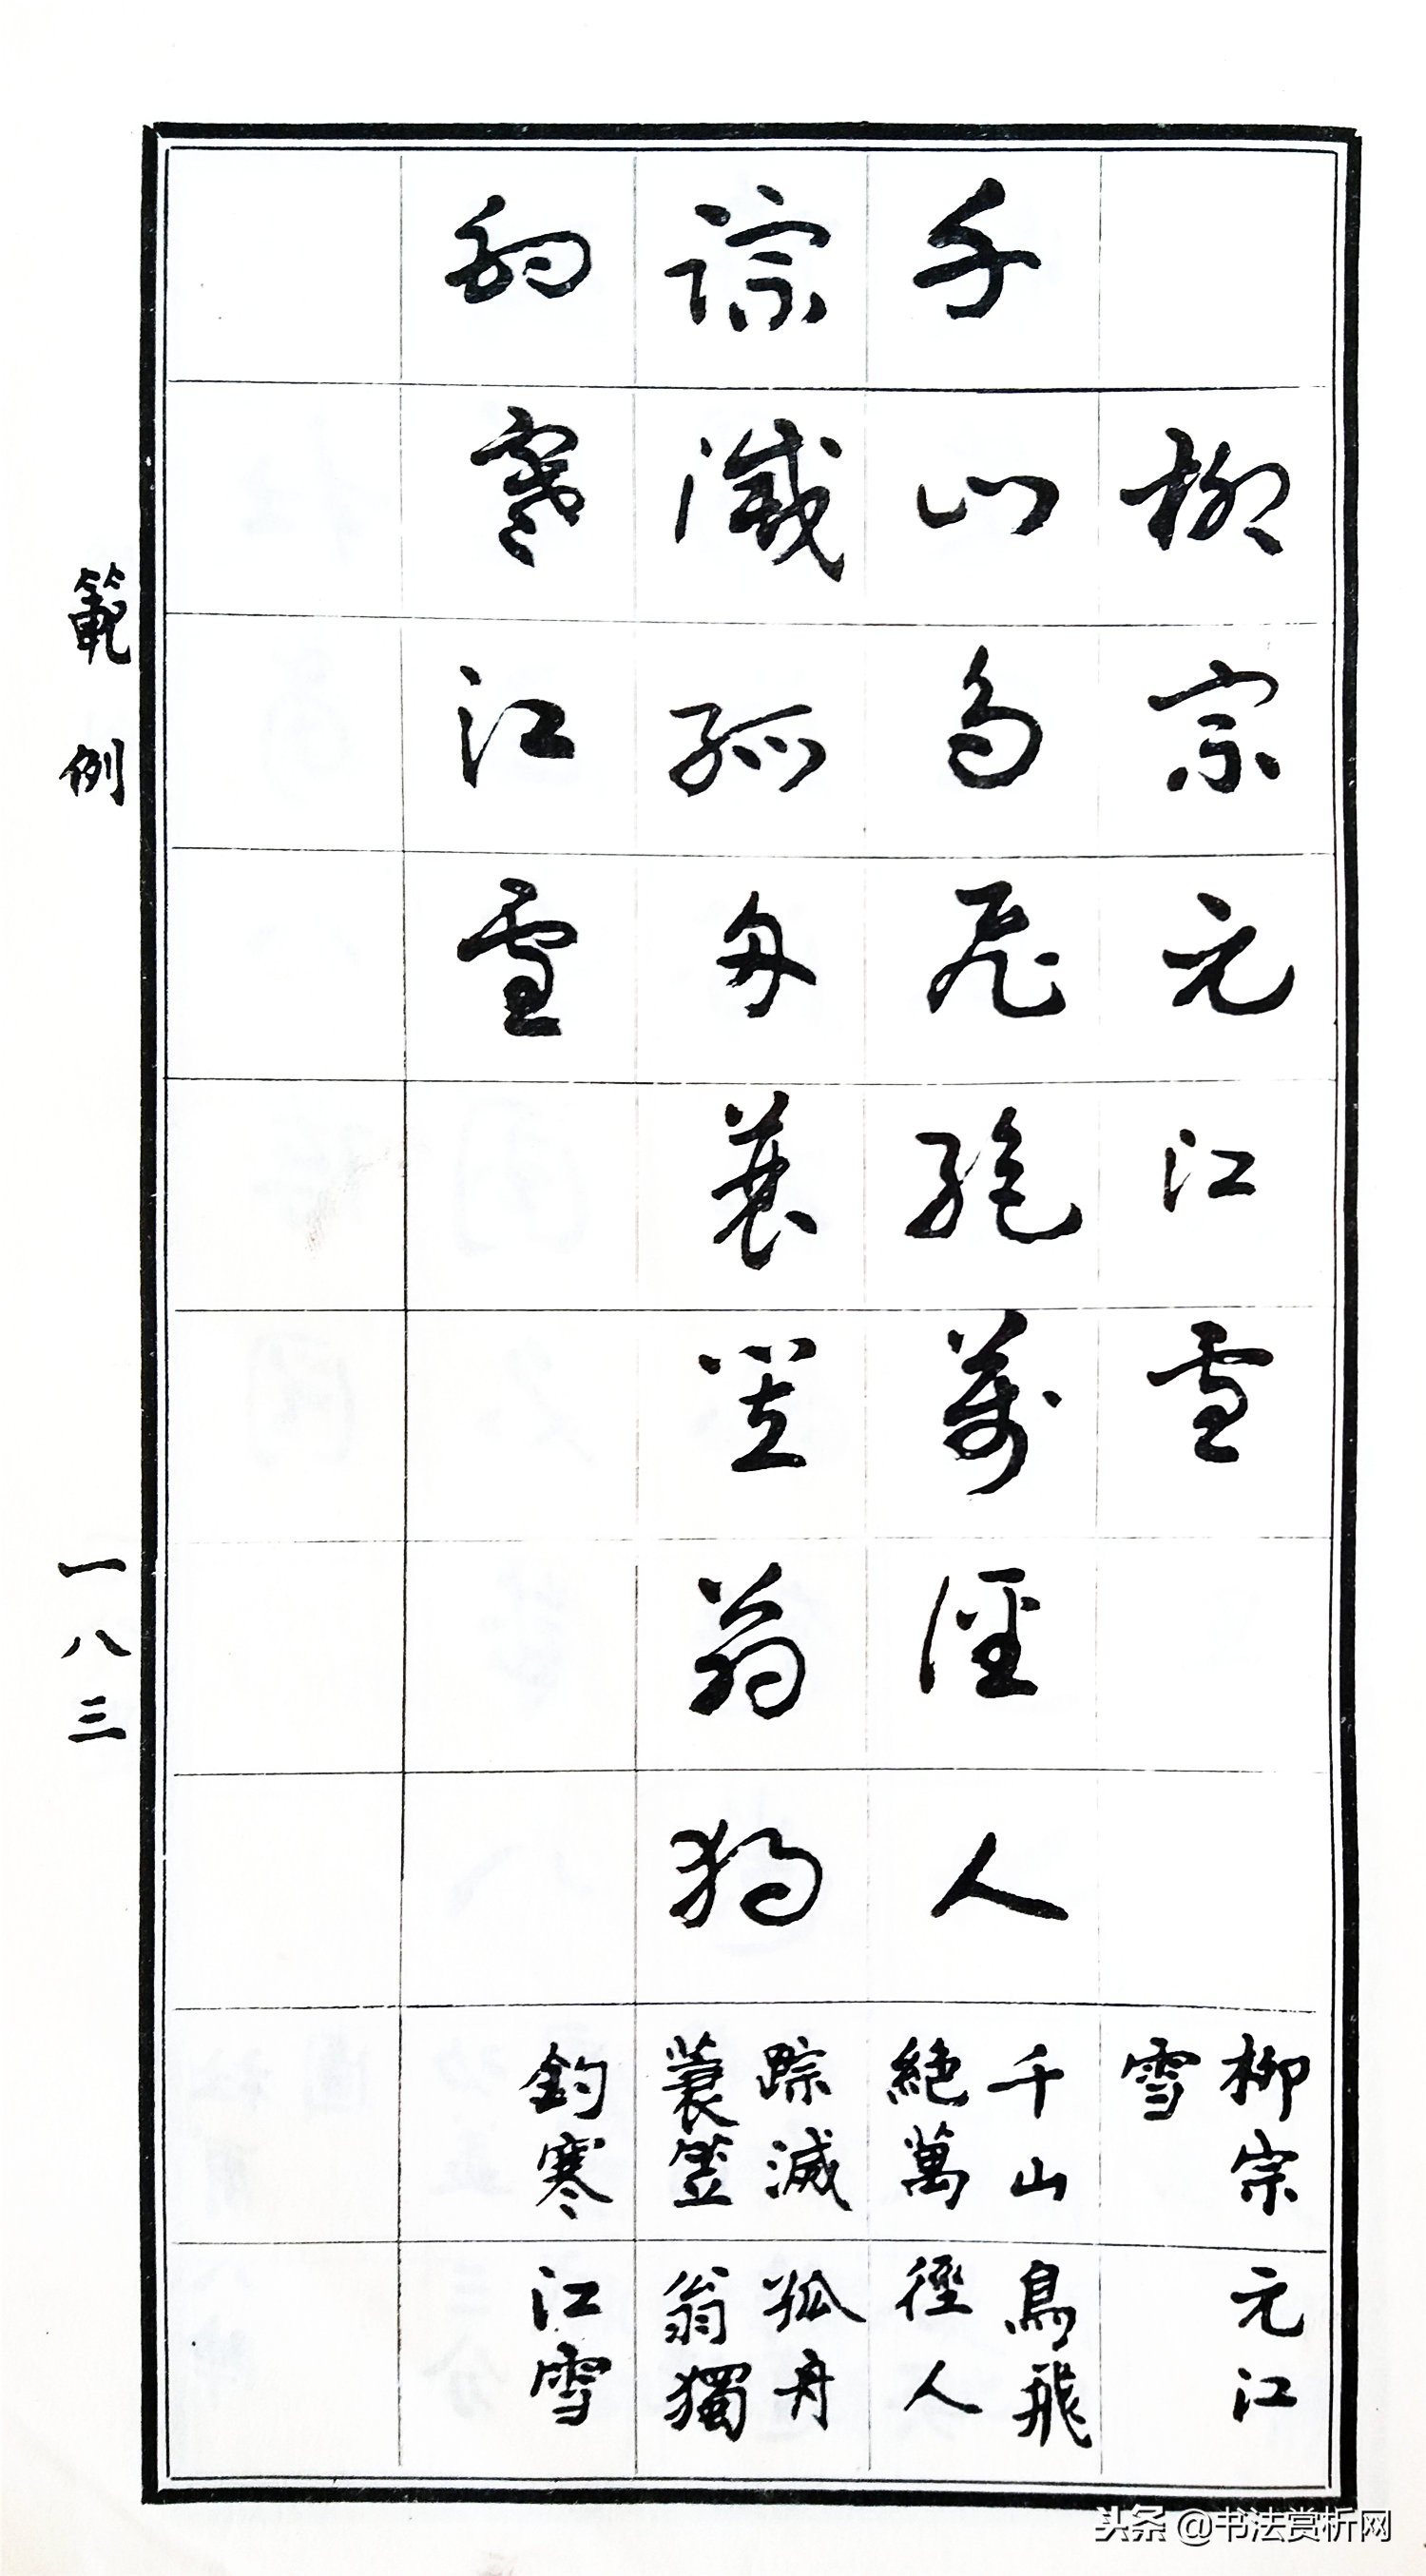 柳宗元江雪
千山鳥飛絕萬徑人
踪滅孤舟蓑笠翁獨
釣寒江雪
柳宗元江
雪
千山鳥飛
絕萬徑人
踪滅孤舟
蓑笠翁獨
釣寒江雪
範例
一八三
头条 @书法赏析网